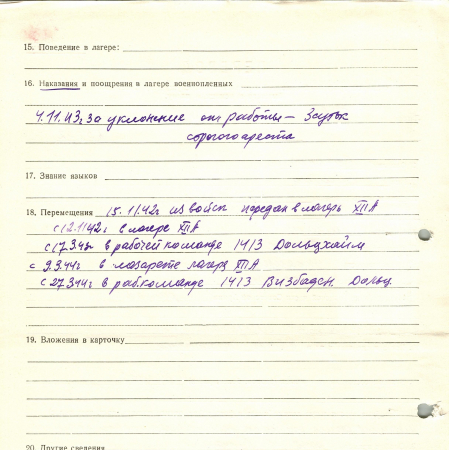 15. Поведение в лагере:
16. Наказания и поощрения в лагере военнопленных
4.11.43г за уклонение от работы – 3 суток
строгого ареста
17. Знание языков
18. Перемещения 15.11.42г из войск передан в лагерь XIIА
с 12.11.42г в лагере XIIА
в рабочей команде 1413 Дольцхайм
с 9.3.44г в лазарете лагеря XIIА
с 27.3.44г в раб. команде 1413 Визбаден. Дольц.
19. Вложения в карточку
20. Другие сведения